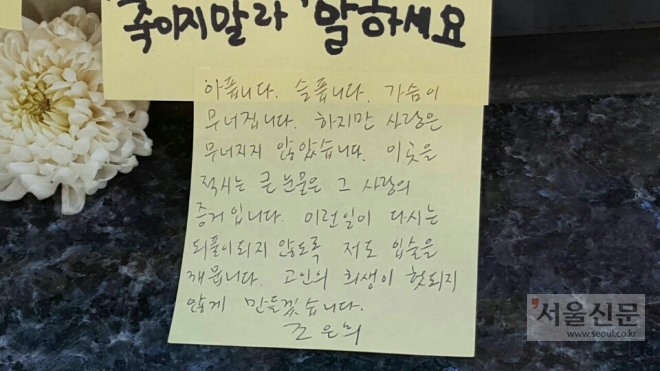 "죽이지말라" 말하세요
아픕니다. 슬픕니다. 가슴이
무너집니다. 하지만 사랑은
무너지지 않았습니다. 이곳을
적시는 큰 눈물은 그 사랑의
증거입니다. 이런일이 다시는
되풀이되지 않도록 저도 입술을
깨뭅니다. 고인의 희생이 헛되지
않게 만들겠습니다.
조은희
서울신문
www.seoul.co.kr